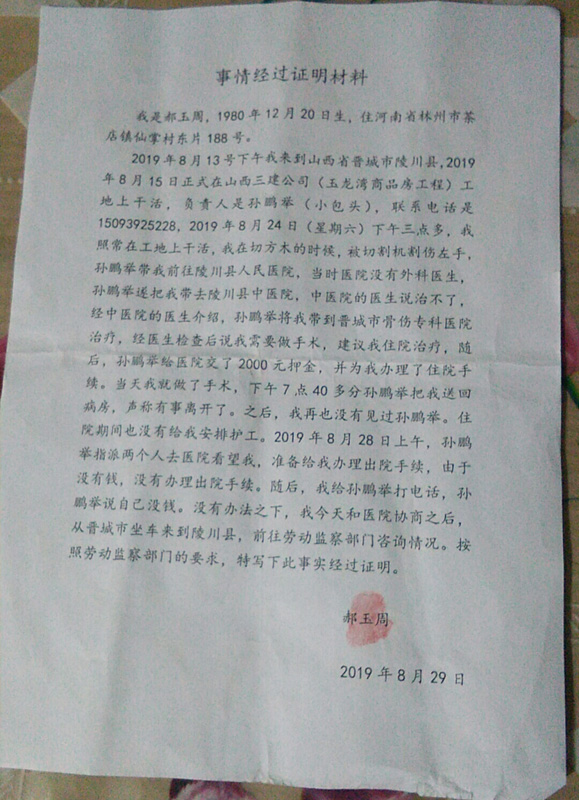 事情经过证明材料
我是郝玉周，1980年12月20日生，住河南省林州市茶
店镇仙掌村东片188号。
2019年8月13号下午我来到山西省晋城市陵川县,2019
年8月15日正式在山西三建公司（玉龙湾商品房工程）工
地上干活，负责人是孙鹏举（小包头），联系电话是
15093925228，2019年8月24日（星期六）下午三点多，我
照常在工地上干活，我在切方木的时候，被切割机割伤左手，
孙鹏举带我前往陵川县人民医院，当时医院没有外科医生，
孙鹏举遂把我带去陵川县中医院，中医院的医生说治不了，
经中医院的医生介绍，孙鹏举将我带到晋城市骨伤专科医院
治疗，经医生检查后说我需要做手术，建议我住院治疗，随
后，孙鹏举给医院交了2000元押金，并为我办理了住院手
续。当天我就做了手术，下午7点40多分孙鹏举把我送回
病房，声称有事离开了。之后，我再也没有见过孙鹏举。住
院期间也没有给我安排护工。2019年8月28日上午，孙鹏
举指派两个人去医院看望我，准备给我办理出院手续，由于
没有钱，没有办理出院手续。随后，我给孙鹏举打电话，孙
鹏举说自己没钱。没有办法之下，我今天和医院协商之后，
从晋城市坐车来到陵川县，前往劳动监察部门咨询情况。按
照劳动监察部门的要求，特写下此事实经过证明。
郝玉周
2019年8月29日